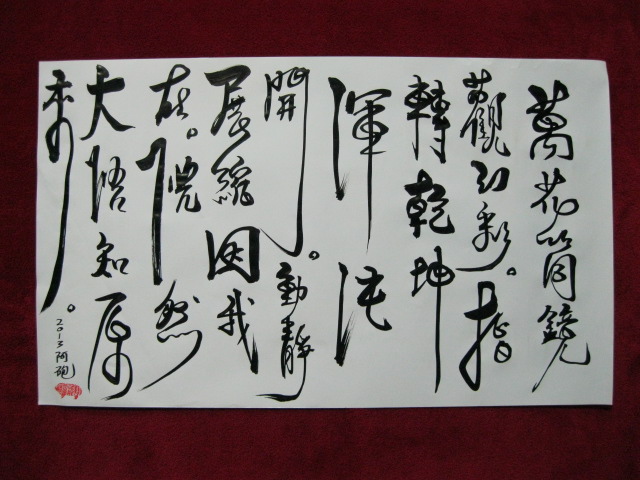 萬花筒鏡
觀幻彩。指
轉乾坤
渾沌
開。動靜
展縮因我
在。恍然
大悟知原
來。
2013 阿砲